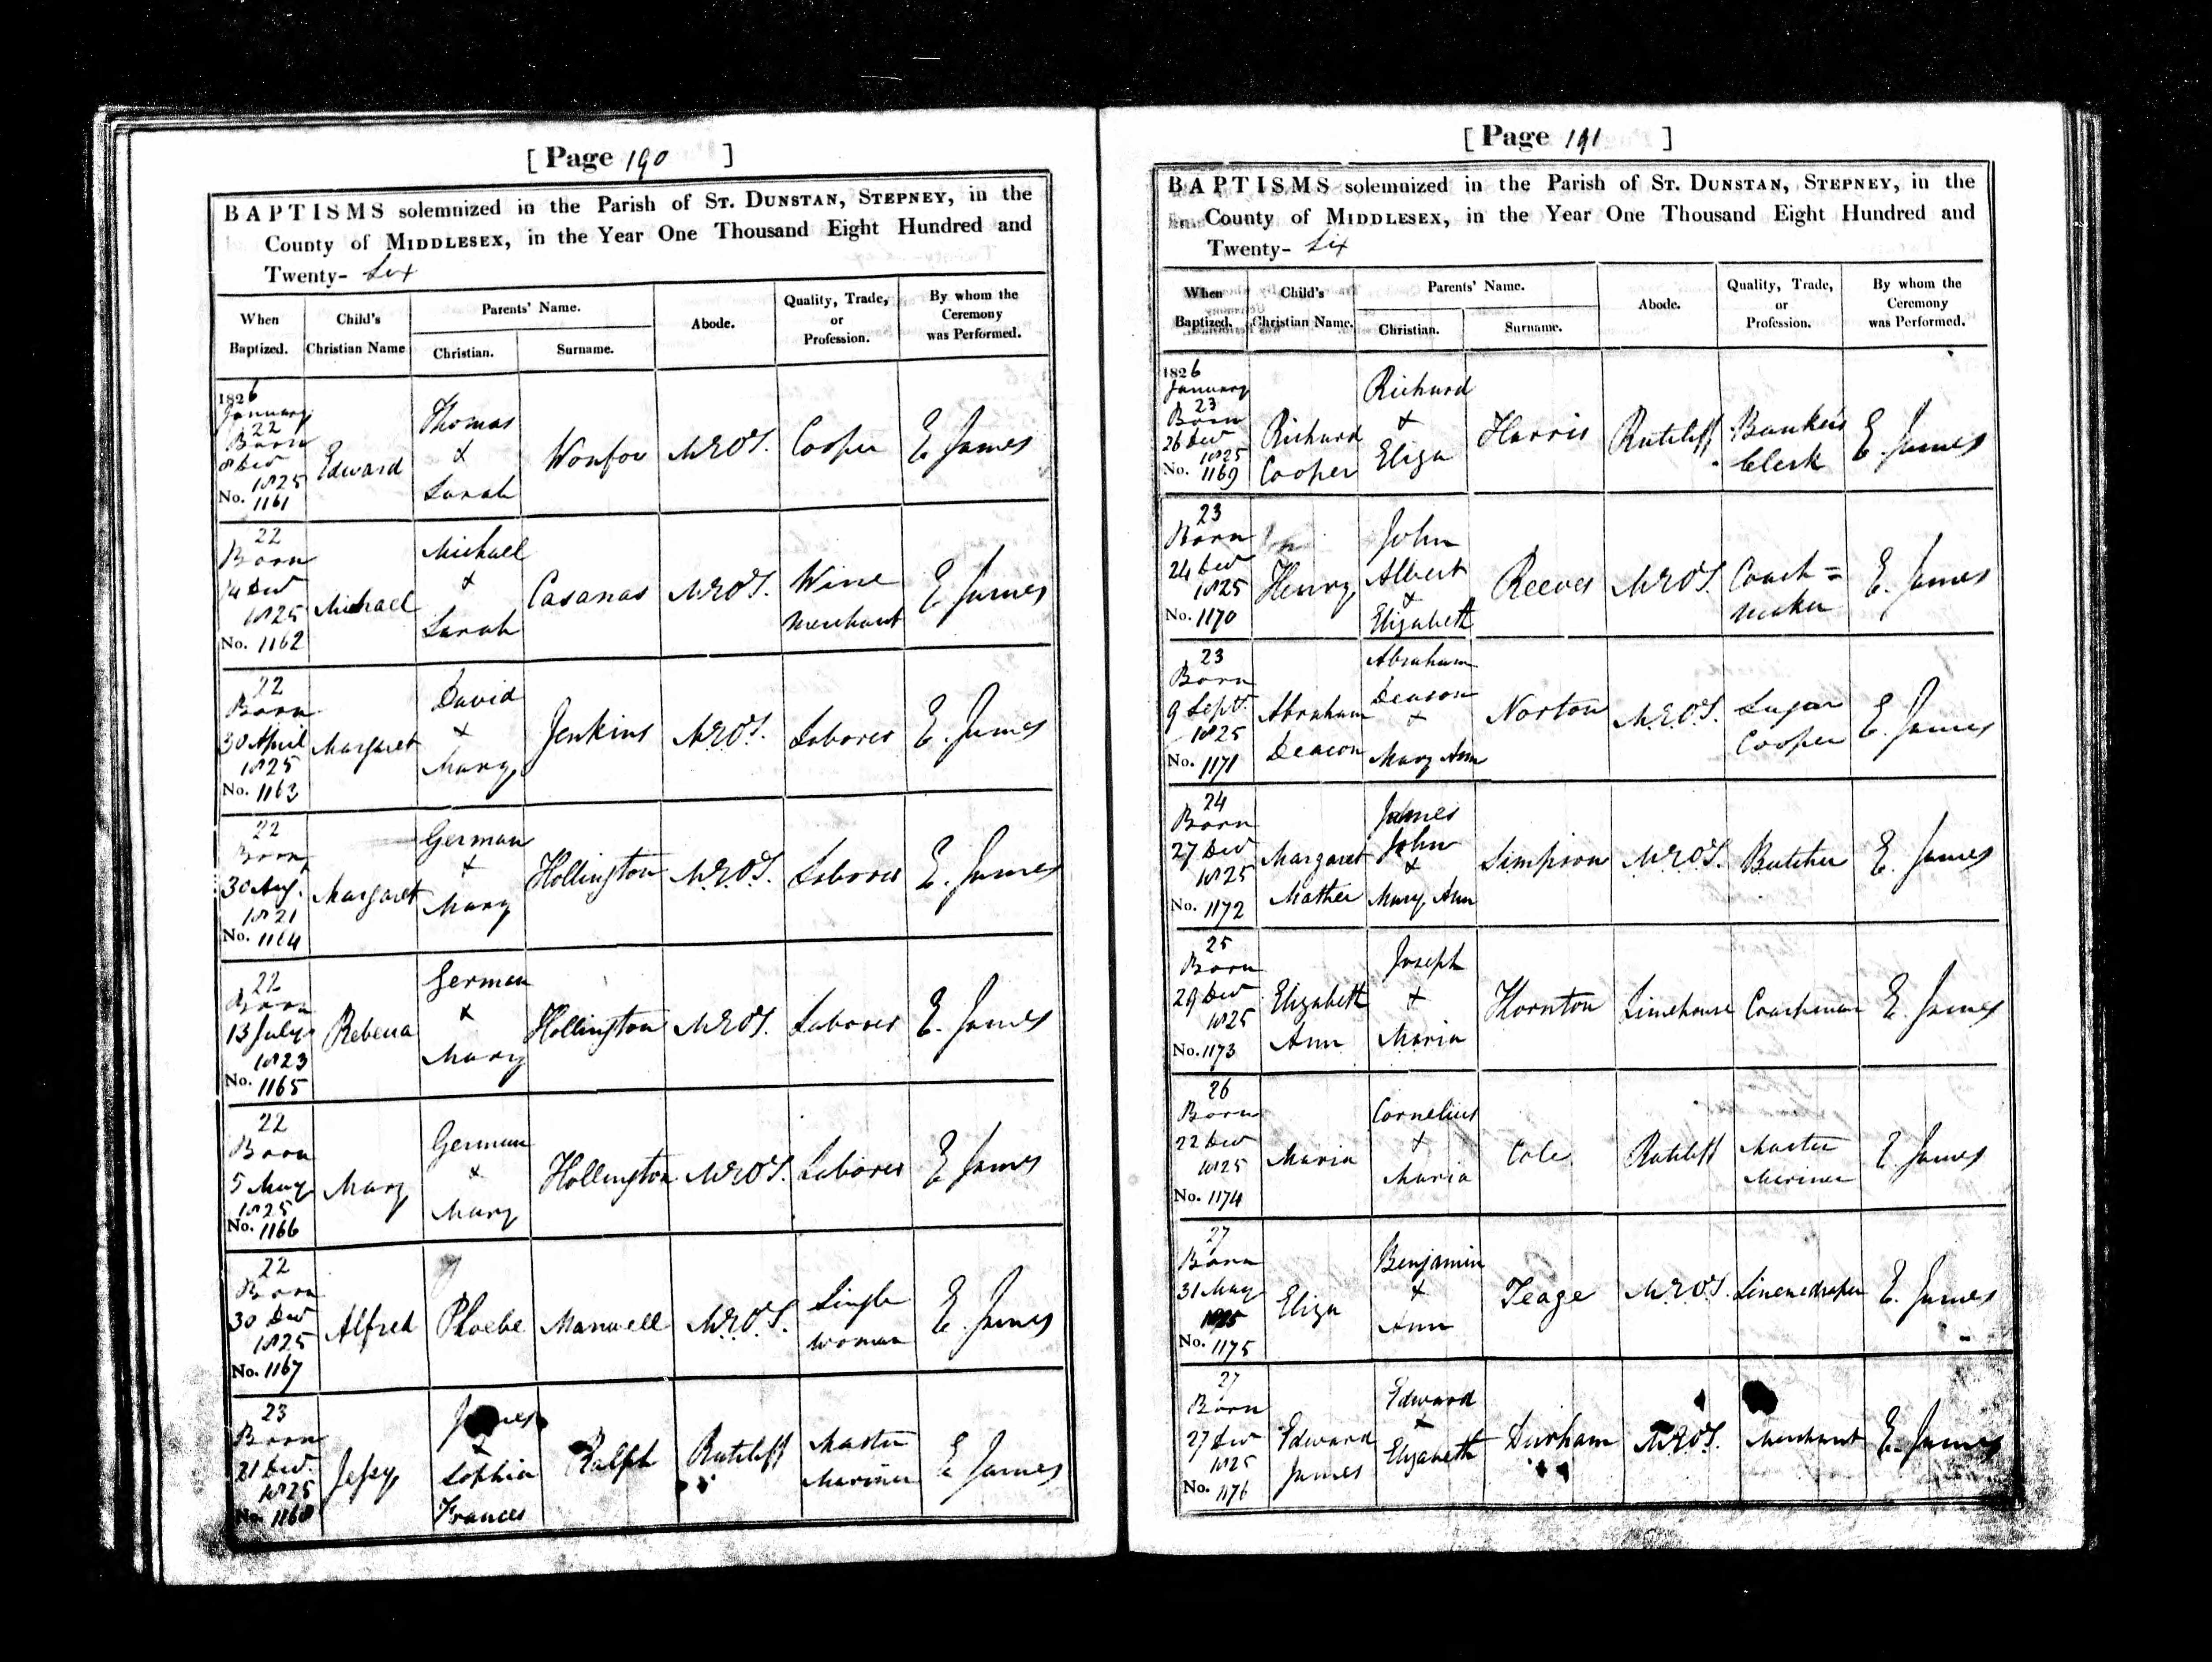 [ Page 190 ]
BAPTISMS solemnized in the Parish of ST. DUNSTAN, STEPNEY, in the
County of MIDDLESEX, in the Year One Thousand Eight Hundred and
Twenty- Six
When Baptized. Child's Christian Name Parents' Name. Christian. Surname. Abode. Quality, Trade, or Profession. By whom the Ceremony was Performed.
1826
January
22
Born
8 Dec
1825
No. 1161
Edward
Thomas
&
Sarah
Wonfor
M.E.O.T.
Cooper
E. James
22
Born
14 Dec
1825
No. 1162
Michael
Michael
&
Sarah
Casanas
M.E.O.T.
Wine
Merchant
E. James
22
Born
30 April
1825
No. 1163
Margaret
David
&
Mary
Jenkins
M.E.O.T.
Laborer
E. James
22
Born
30 Aug.
1821
No. 1164
Margaret
German
&
Mary
Hollington
M.E.O.T.
Laborer
E. James
22
Born
13 July
1823
No. 1165
Rebecca
German
&
Mary
Hollington
M.E.O.T.
Laborer
E. James
22
Born
5 May
1825
No. 1166
Mary
German
&
Mary
Hollington
M.E.O.T.
Laborer
E. James
22
Born
30 Dec
1825
No. 1167
Alfred
Phoebe
Manwell
M.E.O.T.
Single
woman
E. James
23
Born
21 Dec.
1825
No. 1168
Jessy
James
&
Sophia
Frances
Ralph
Ratcliff
Master
Mariner
E. James
[ Page 191 ]
BAPTISMS solemnized in the Parish of ST. DUNSTAN, STEPNEY, in the
County of MIDDLESEX, in the Year One Thousand Eight Hundred and
Twenty- Six
When Baptized. Child's Christian Name. Parents' Name. Christian. Surname. Abode. Quality, Trade, or Profession. By whom the Ceremony was Performed.
1826
January
23
Born
26 Dec
1825
No. 1169
Richard
Cooper
Richard
&
Eliza
Harris
Ratcliff
Banker's
Clerk
E. James
23
Born
24 Dec
1825
No. 1170
Henry
John
Albert
&
Elizabeth
Reeves
M.E.O.T.
Coach=
maker
E. James
23
Born
9 Sept.
1825
No. 1171
Abraham
Deacon
Abraham
Deacon
&
Mary Ann
Norton
M.E.O.T.
Sugar
Cooper
E. James
24
Born
27 Dec
1825
No. 1172
Margaret
Mather
James
John
&
Mary Ann
Simpson
M.E.O.T.
Butcher
E. James
25
Born
29 Dec
1825
No. 1173
Elizabeth
Ann
Joseph
&
Maria
Thornton
Limehouse
Coachman
E. James
26
Born
22 Dec
1825
No. 1174
Maria
Cornelius
&
Maria
Cole
Ratcliff
Master
Mariner
E. James
27
Born
31 May
1825
No. 1175
Eliza
Benjamin
&
Ann
Teage
M.E.O.T.
Linendraper
E. James
27
Born
27 Dec
1825
No. 1176
Edward
James
Edward
&
Elizabeth
Durham
M.E.O.T.
Merchant
E. James